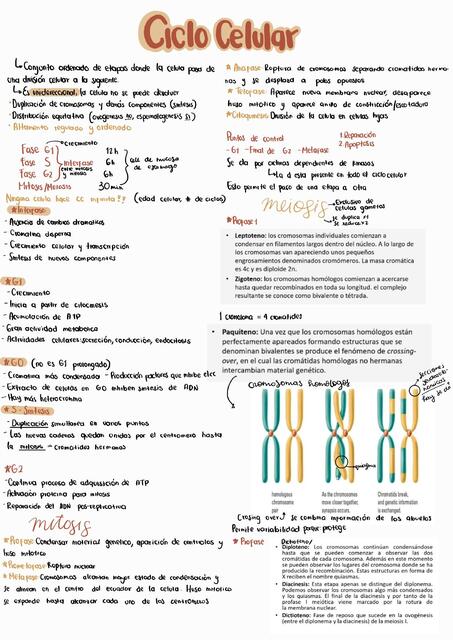 Ciclo Celular
Conjunto ordenado de etapas donde la celula pasa de
una división celular a la siguiente.
Es unidireccional, la celula no se puede devolver
- Duplicación de cromosomas y demás componentes (síntesis)
- Distribución equitativa
- Altamente regulado y ordenado
Crecimiento
Fase G1 12h
Fase S Interfase 6h
Fase G2 6h
Mitosis/Meiosis 30 min
(edad celular, # de ciclos)
*Interfase
- Ausencia de cambios dramaticos
- Cromatina dispersa
- Crecimiento celular y transcripción
- Síntesis de nuevos componentes
*G1
- Crecimiento
- Inicia a partir de citocinesis
- Acumulación de ATP
- Gran actividad metabolica
- Actividades celulares: secreción, conducción, endocitosis
*G0 (no es G1 prolongado)
- Cromatina más condensada - Producción factores que inhibe
- Extracto de celulas en G0 inhiben síntesis de ADN
- Hay más heterocromatina
*S - Síntesis
- Duplicación simultanea en varios puntos
- Las nuevas cadenas quedan unidas por el centromero hasta
la mitosis - Cromatidas hermanas
*G2
- Continua proceso de adquisición de ATP
- Activación proteina para mitosis
- Reparación del ADN post-replicativa
Mitosis
*Profase: Condensar material genético, aparición de centriolos y
huso mitotico
*Prometafase: Ruptura nuclear
*Metafase: Cromosomas alcanzan mayor estado de condensación y
se alinean en el centro del ecuador de la celula. Huso mitotico
se expande hasta alcanzar cada uno de los centromeros
*Anafase: Ruptura de cromosomas separando cromatidas herma-
nas y se desplaza a polos opuestos
*Telofase: Aparece nueva membrana nuclear, desaparece
huso mitotico y aparece anillo de constricción/estrechadura
*Citoquinesis: División de la celula en celulas hijas
Puntos de control
1. Reparación
2. Apoptosis
- G1 - Final de G2 - Metafase
Se da por ciclinas dependientes de kinasas
La d esta presente en todo el ciclo celular
Esto permite el paso de una etapa a otra
meiosis
Exclusivo de
celulas gametos
Se duplica x1
Se reduce x2
*Profase 1
• Leptoteno: los cromosomas individuales comienzan a
condensar en filamentos largos dentro del núcleo. A lo largo de
los cromosomas van apareciendo unos pequeños
engrosamientos denominados cromómeros. La masa cromática
es 4c y es diploide 2n.
• Zigoteno: los cromosomas homólogos comienzan a acercarse
hasta quedar recombinados en toda su longitud. el complejo
resultante se conoce como bivalente o tétrada.
= 4 cromatides
• Paquiteno: Una vez que los cromosomas homólogos están
perfectamente apareados formando estructuras que se
denominan bivalentes se produce el fenómeno de crossing-
over, en el cual las cromátidas homólogas no hermanas
intercambian material genético.
Cromosomas homólogos
quiasma
homologous
chromosome
pair
As the chromosomes
move closer together,
synapsis occurs.
Chromatids break,
and genetic information
is exchanged.
Crosing over: se combina información de los abuelos
Permite variabilidad
*Profase
• Diploteno: Los cromosomas continúan condensándose
hasta que se pueden comenzar a observar las dos
cromátidas de cada cromosoma. Además en este momento
se pueden observar los lugares del cromosoma donde se ha
producido la recombinación. Estas estructuras en forma de
X reciben el nombre quiasmas.
• Diacinesis: Esta etapa apenas se distingue del diplonema.
Podemos observar los cromosomas algo más condensados
y los quiasmas. El final de la diacinesis y por tanto de la
profase I meiótica viene marcado por la rotura de
la membrana nuclear.
• Dictioteno: Fase de reposo que sucede en la ovogénesis
(entre el diplonema y la diacinesis) de la meiosis I.